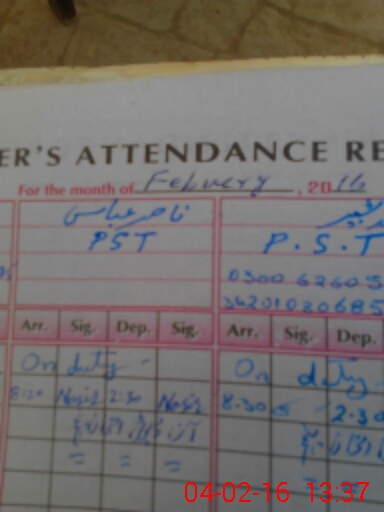 ER'S ATTENDANCE RE
For the month of Febuery, 2016
ناصر عباس
PST P.S.T
0300 62605
34201030685
Arr. Sig. Dep. Sig. Arr. Sig. Dep.
On duty - On duty -
8:20 Nasir 2:30 Nasir 8:30 2:30
= = =
04-02-16 13:37